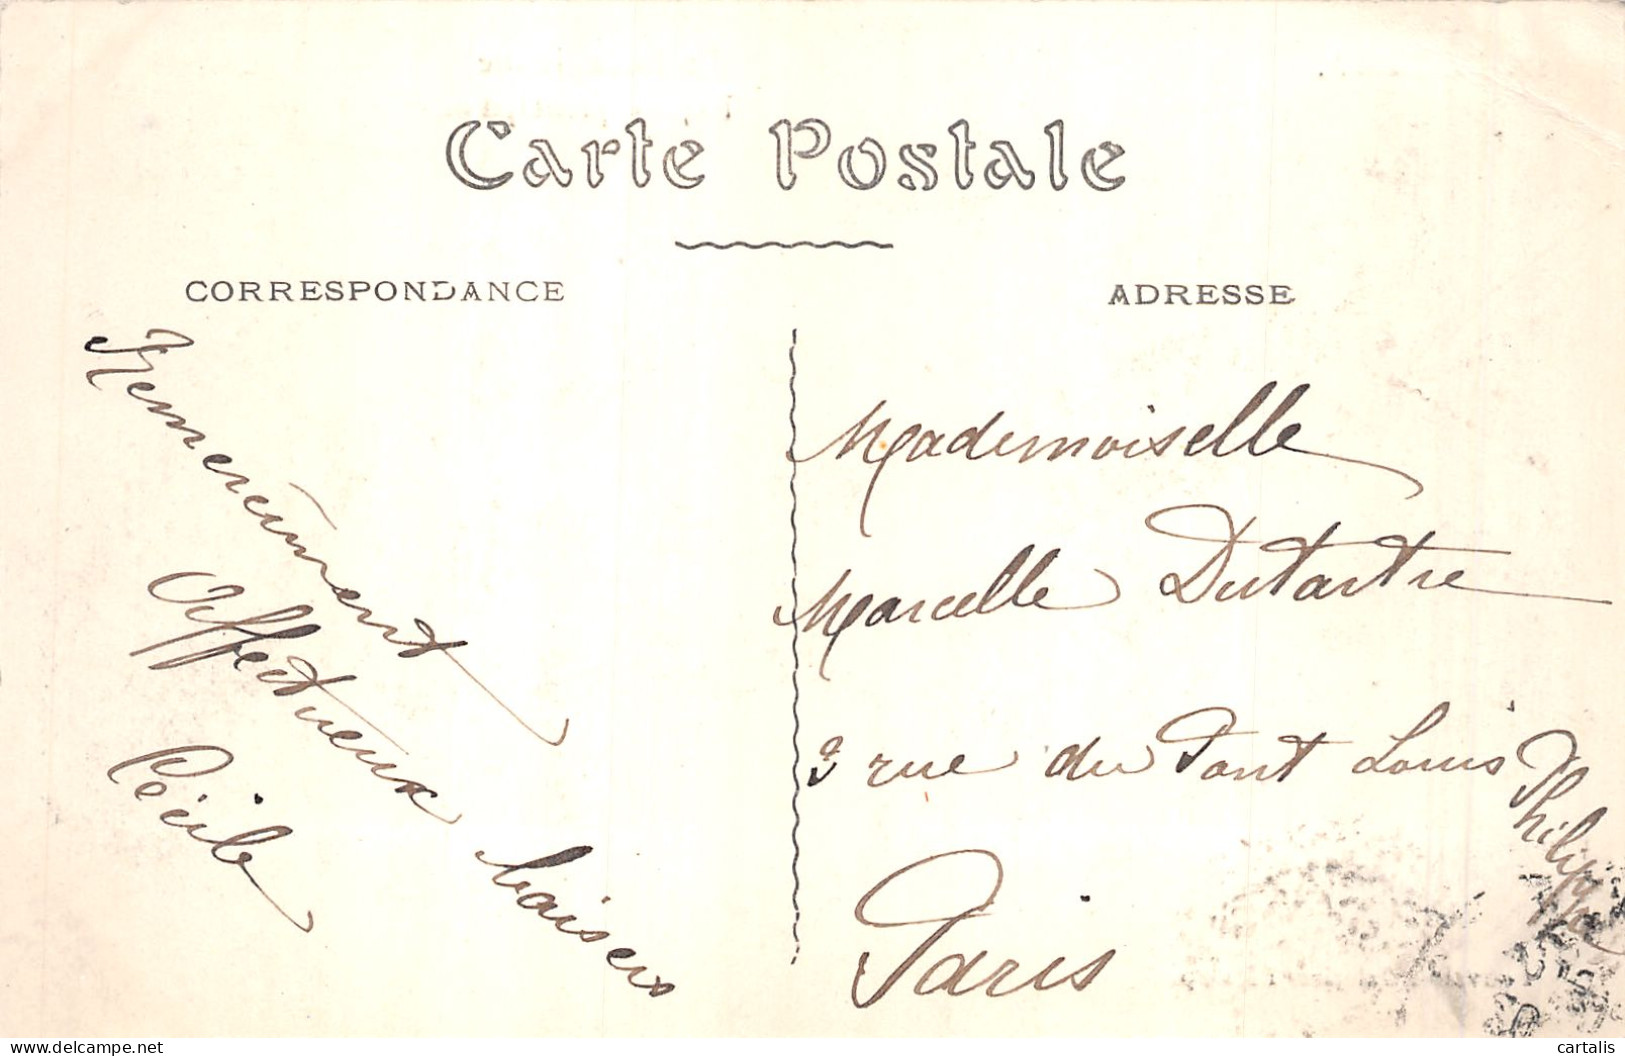 Carte Postale
CORRESPONDANCE
Remerciement
Affectueux baisers
Cécile
ADRESSE
Mademoiselle
Marcelle Dutartre
9 rue du Pont Louis Philippe
Paris
delcampe.net
cartalis